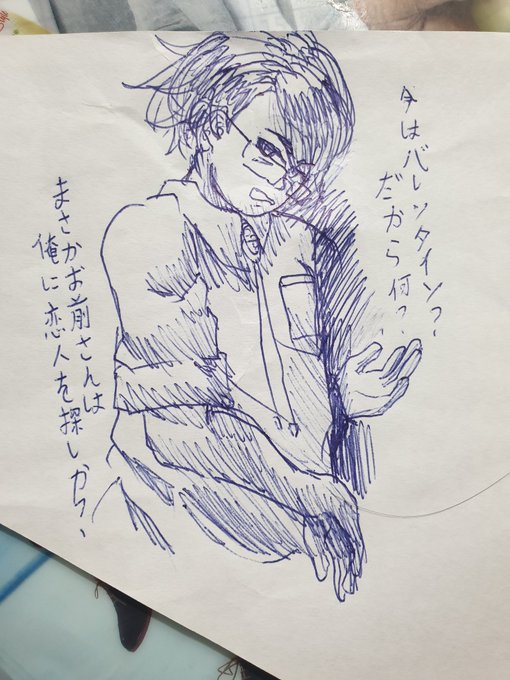 今はバレンタイン?
だから何?
まさかお前さんは
俺に恋人を探しから、